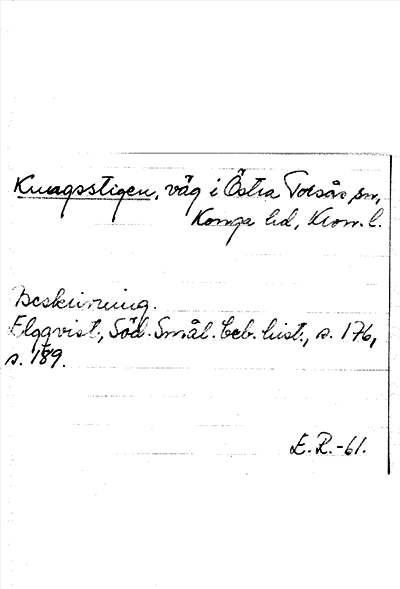 Knagsstigen, väg i Östra Torsås sn,
Konga hd, Kron. l.
Beskrivning.
Elgqvist, Söd. Smål. beb. hist., s. 176,
s. 189.
E. R. -61.